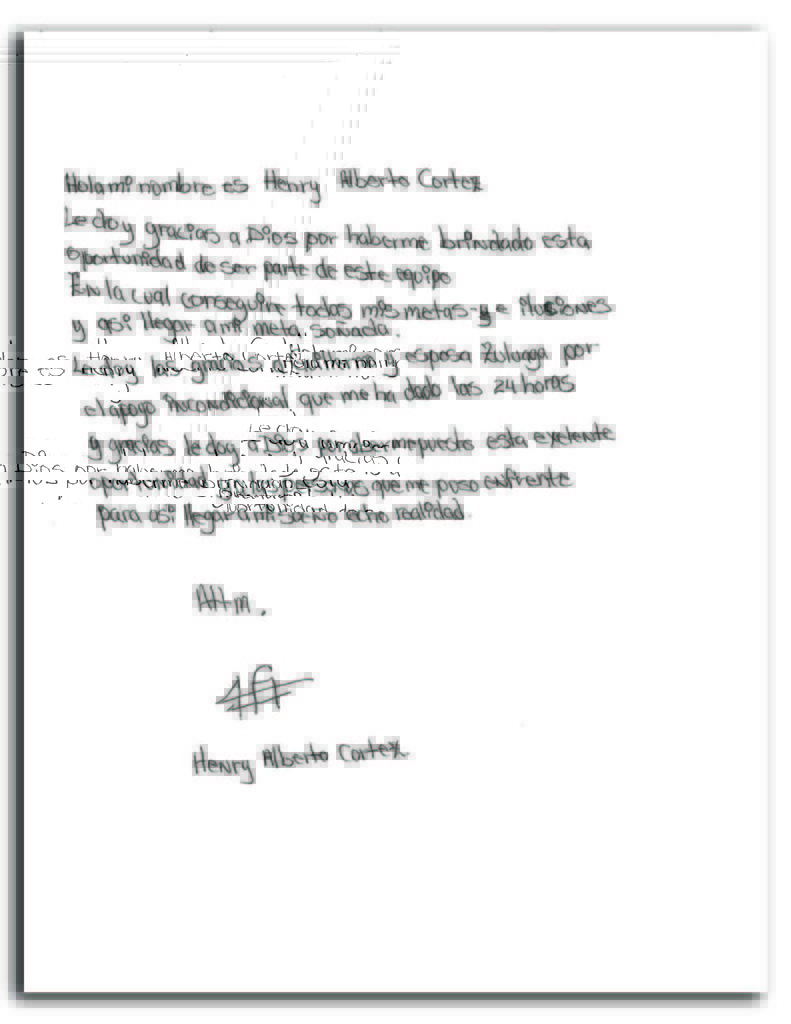 Hola mi nombre es Henry Alberto Cortez
Le doy gracias a Dios por haberme brindado esta
oportunidad de ser parte de este equipo
En la cual conseguire todas mis metas y e ilusiones
y asi llegar a mi meta soñada.
las gracias a y esposa Zuluaga por
el apogo incondicional que me ha dado las 24 horas
y gracias le doy a Dios por aber mepuesto esta exelente
oportunidad que me puso enfrente
para asi llegar a mi sueño echo realidad.
Attm.
Henry Alberto Cortez.